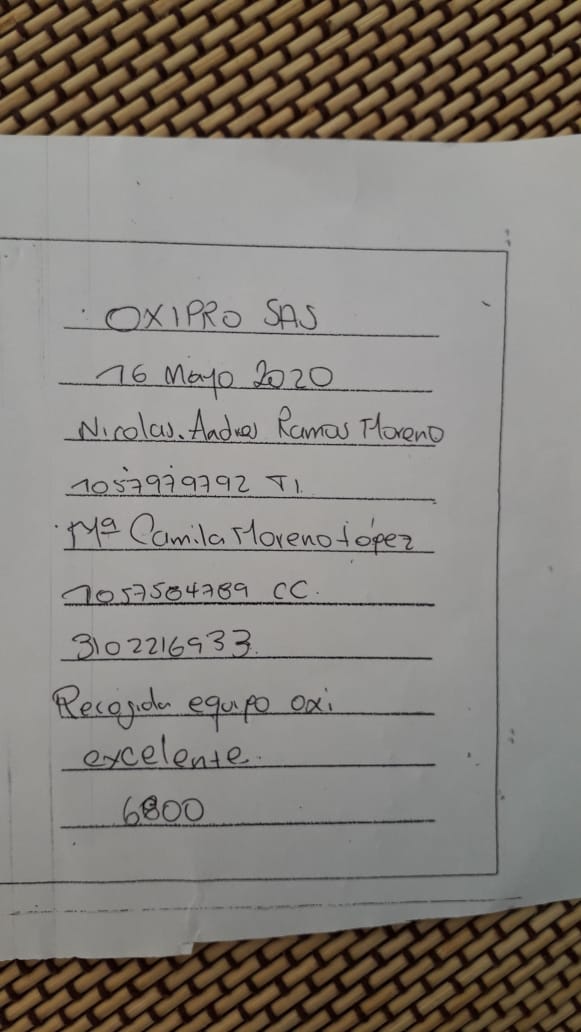 OXIPRO SAS
16 Mayo 2020
Nicolas. Andres Ramos Moreno
1057979792 TI.
Mª Camila Moreno López
1057584789 CC.
3102216933.
Recogida equipo oxi
excelente.
6800